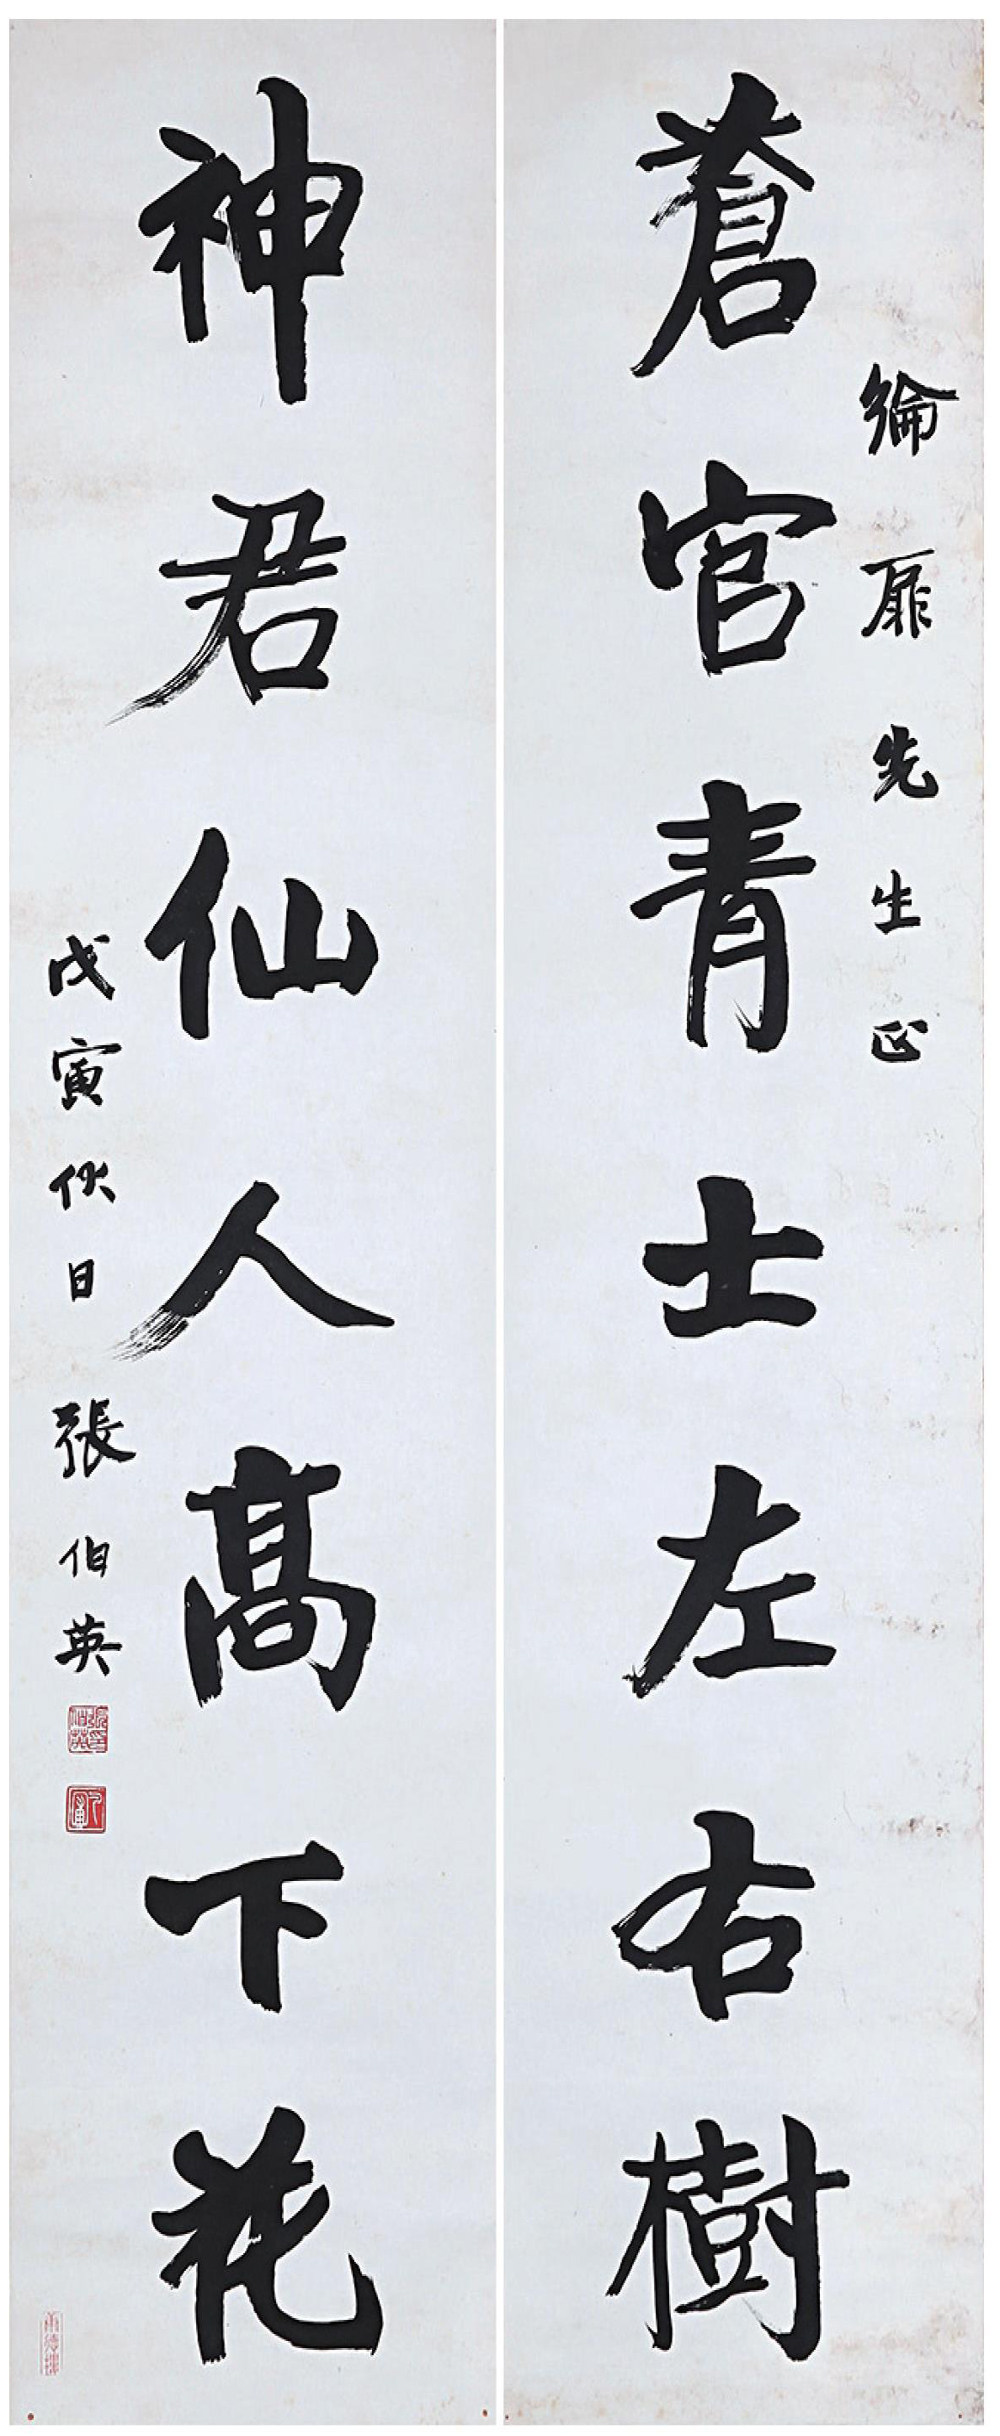 綸扉先生正
蒼官青士左右樹
神君仙人高下花
戊寅伏日張伯英